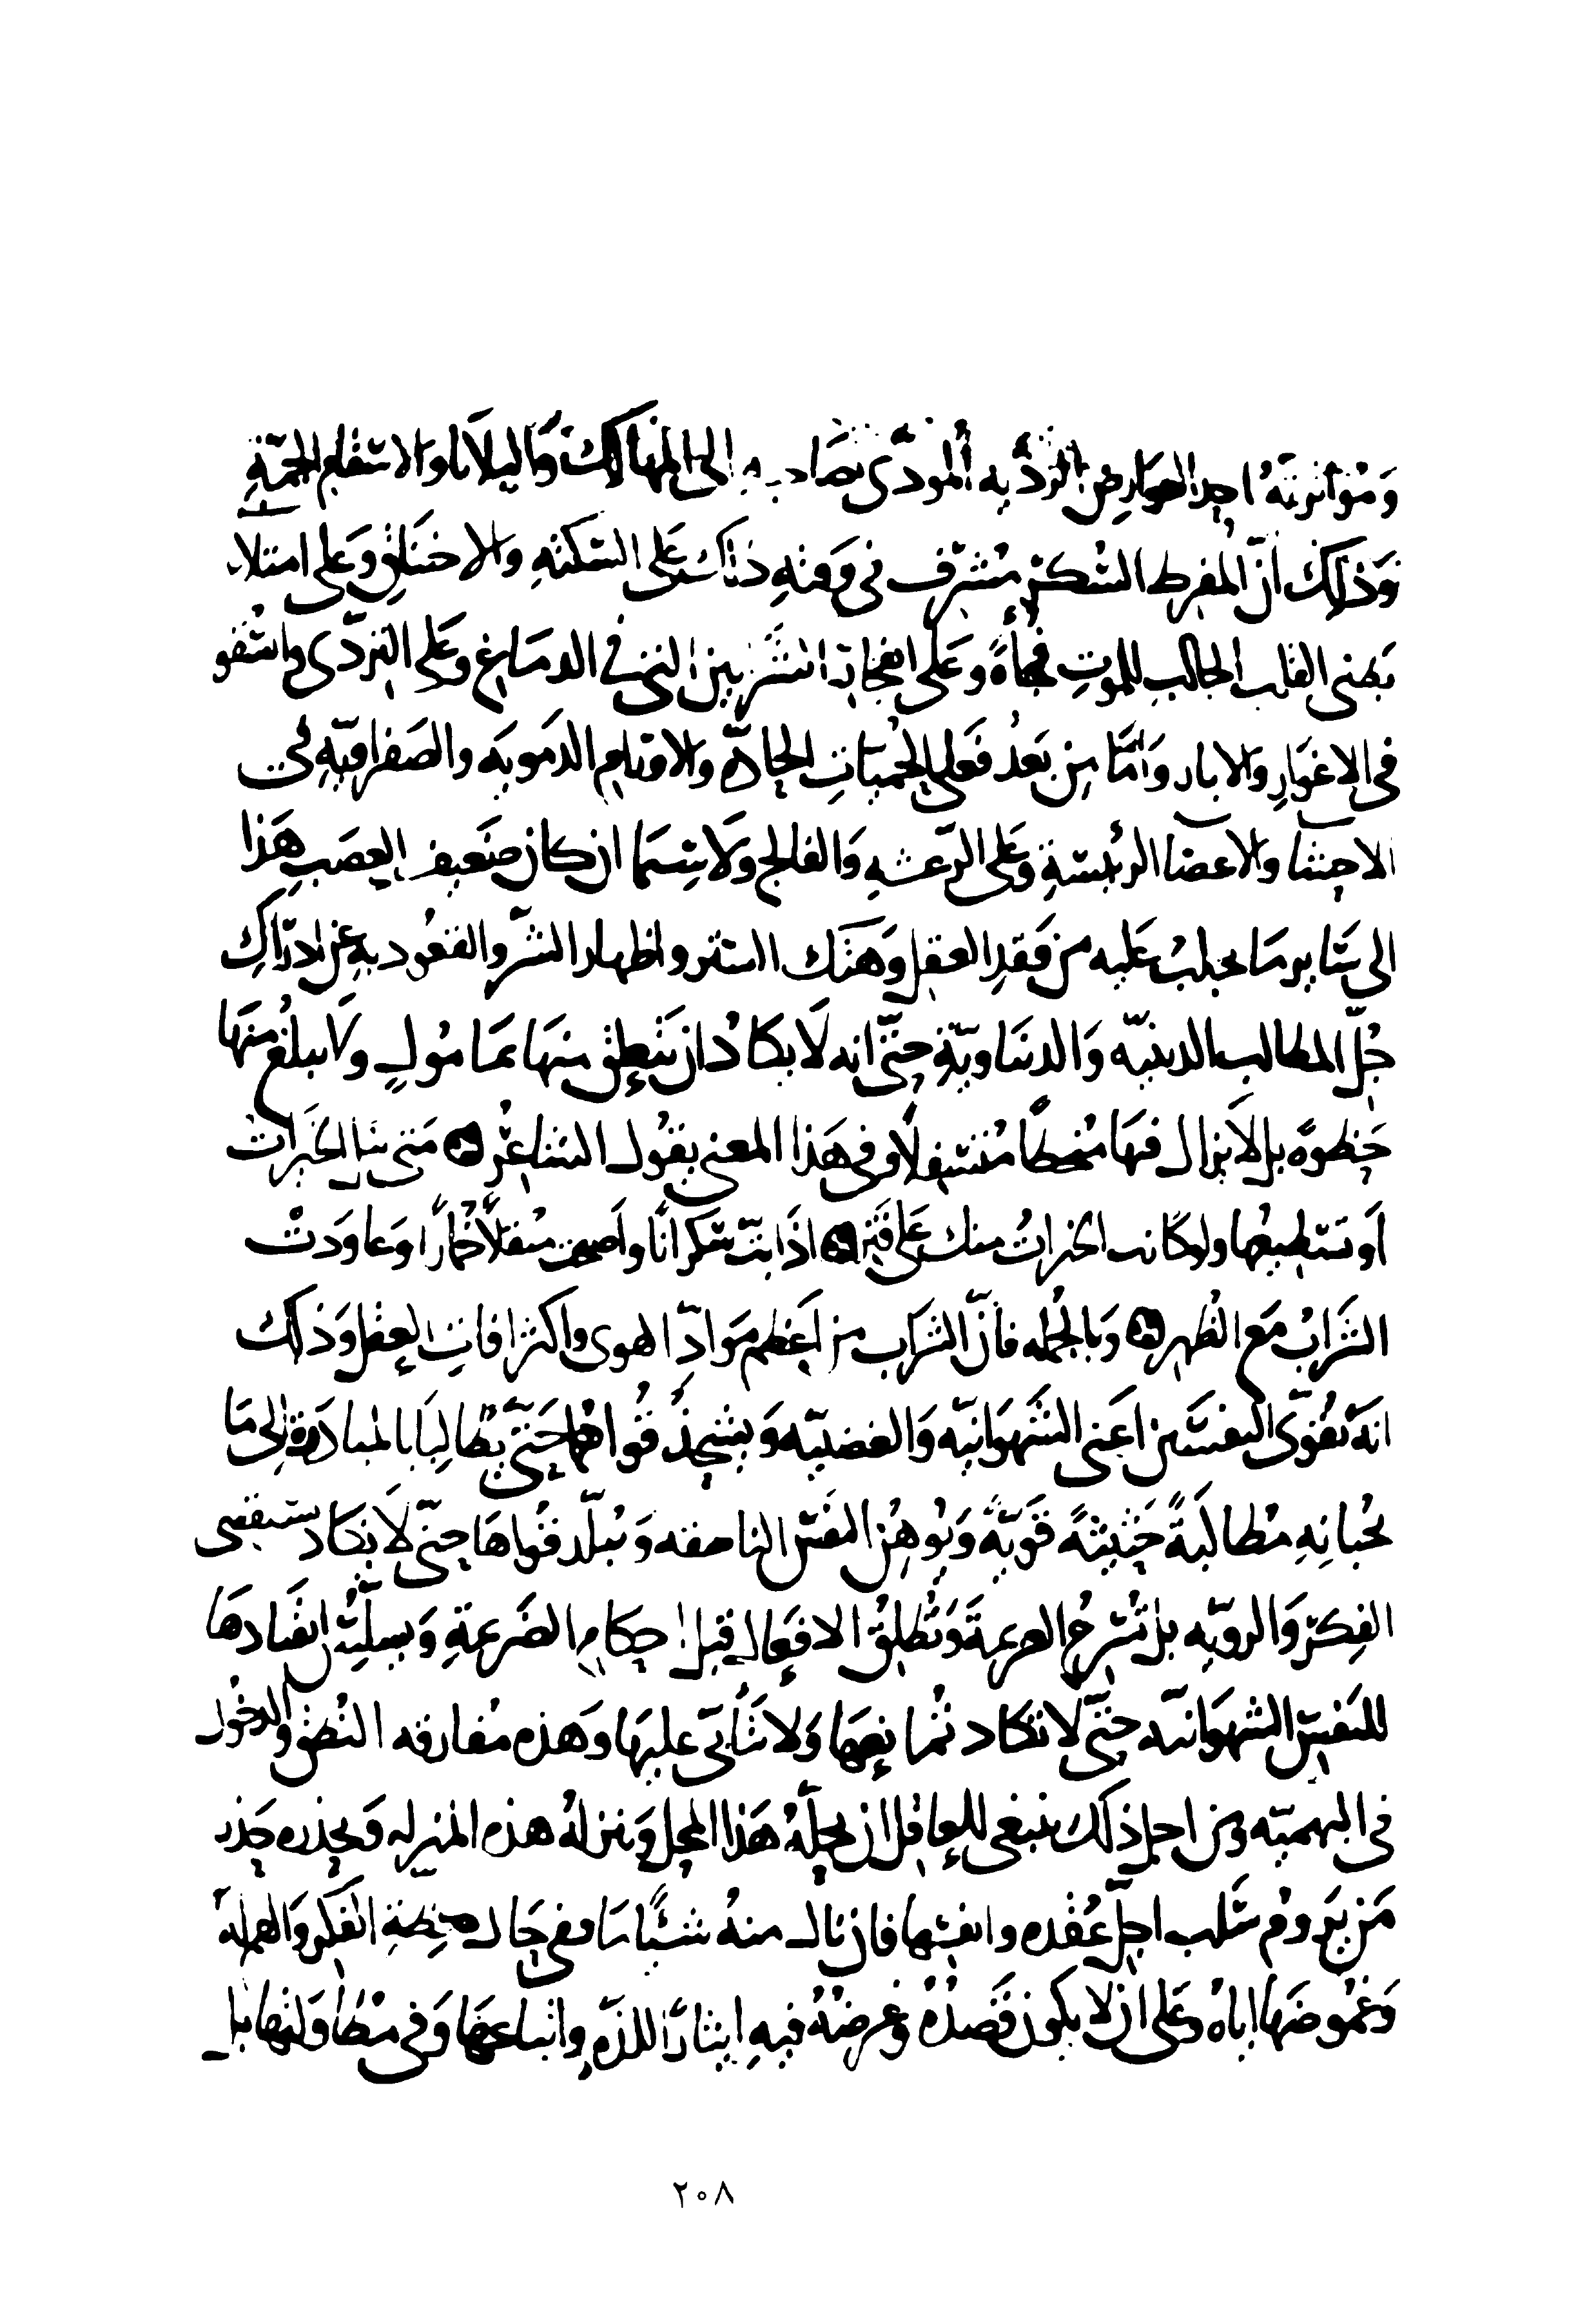 وَمُؤاترتهُ احد العوارض الرديّه المودّى بصاحبه الى المهالك والبلايا والاسقام الجمّةِ
وَذلك انّ المفرط السُكر مُشرف فى وقتهِ ذاك على السكتهِ والاختناقِ وعلى امتلاء
بطنى القلب الجالب للموتِ فجأةً وعلى انفجار الشريين التى فى الدماغ وعلى التردّى والسقو
فى الاغوارِ والابار وَامّا من بَعدُ فعلى الحُميّاتِ الحادّة والاورام الدمويه والصفراويّهِ فى
الاحشا والاعضا الرئيسةِ وعلى الرّعشهِ والفالج ولا سيّما ان كان ضعيف العصَبِ هَذا
الى سَايرِ ما يجلبُ عَليه من فقدِ العقل وَهتك الستر واظهار السّر والقعُود بهِ عن ادراكِ
جُلّ المطالب الدينيّه وَالدنياويّةِ حتّى انه لا يكادُ ان يتعلق منها بمَامُولٍ ولا يبلغ منها
حظوةً بل لا يزال فيها مُنحطاً مُتسفلاً وفى هَذا المعنى يقُول الشاعرُ ۞ مَتى تنال الخيراتِ
اَو تستطيعُها ولو كانت الخيراتُ منك على فتر ۞ اذا بتّ سَكرانًا واَصبحت مثقلاً خُمارًا وَعاودت
الشرابَ مَع الظهر ۞ وَبالجُمله فانّ الشرَاب من اَعظم مَوادّ الهوى واكثر افاتِ العقل وَذلك
انهّ يُقوّى النفسَين اعَنى الشهوَانيّه وَالغضبيّه وَيشحذُ قُواهما حَتّى يُطالبَا بالمبادرة الى مَا
يُحبانِهِ مُطالَبَةً حَثيثةً قَويّهً وَيُوهِن النفسَ الناطقه وَيُبلّد قُواها حتّى لا تكاد تستقصى
الفِكرَ وَالرويّه بل تُسرحُ العزيمة وتُطلقُ الافعال قبل احكامِ الصَريمةِ وَيسلسُ انقيادهَا
للنفسِ الشهوَانيّه حتّى لا تكاد تُمانِعهَا وَلا تتأبّى عليها وَهذه مُفارقه النُطق والدخُول
فى البهيميّه ومن اجل ذلك ينبغى للعاقل ان يُحِلّهُ هَذا المحل وَينزلهُ هذه المنزله وَيحذره حَذر
مَن يَرومُ سَلب اجلّ عُقده وانفسها فان نال منهُ شَيئًا مَا ففى حَال الفكر وَالهمِ لهُ
وَغُموضهَا اياهُ وعَلى ان لا يكون قَصدُهُ وغرضهُ فيهِ ايثارًا للذّهِ واتباعهَا وَفى مطاولتها
٢٠٨